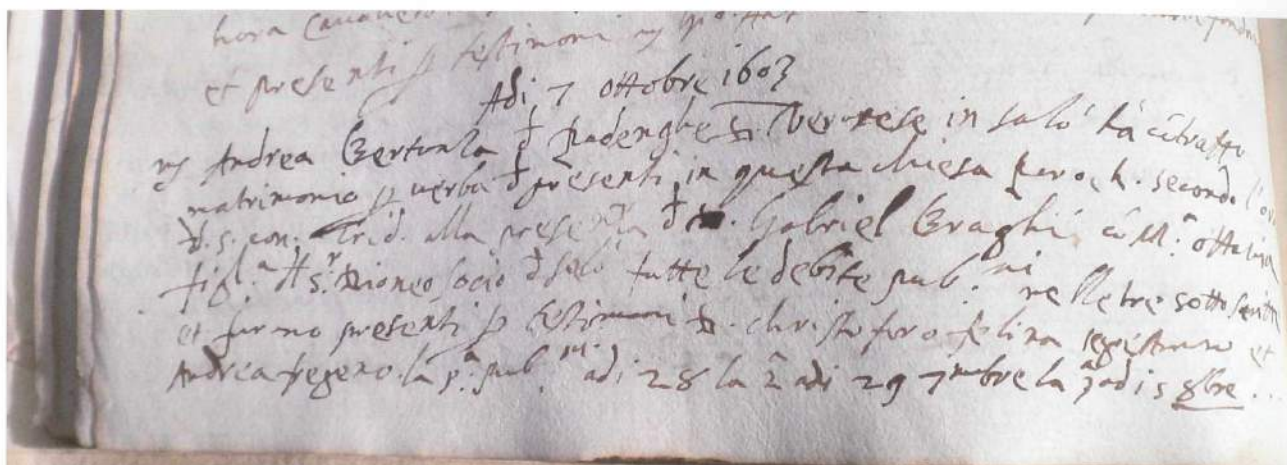 hora
et presenti p testimoni
Adi 7 ottobre 1603
Andrea Bertinla d Padenghe Veronese in salò hà cōtratto
matrimonio p verba d presenti in questa chiesa paroch. secondo l'or
d. s. con. Trid. alla presenza d Gabriel Braghi cō M.ª Ottavia
fig.ª socio d salò fatte le debite pub.ni nelletre sotto scritti
et furno presenti p testimoni christoforo felina et
Andrea fegeno la p.ª pub. adi 28 la 2ª adi 29 7mbre la 3ª adi 5 8bre